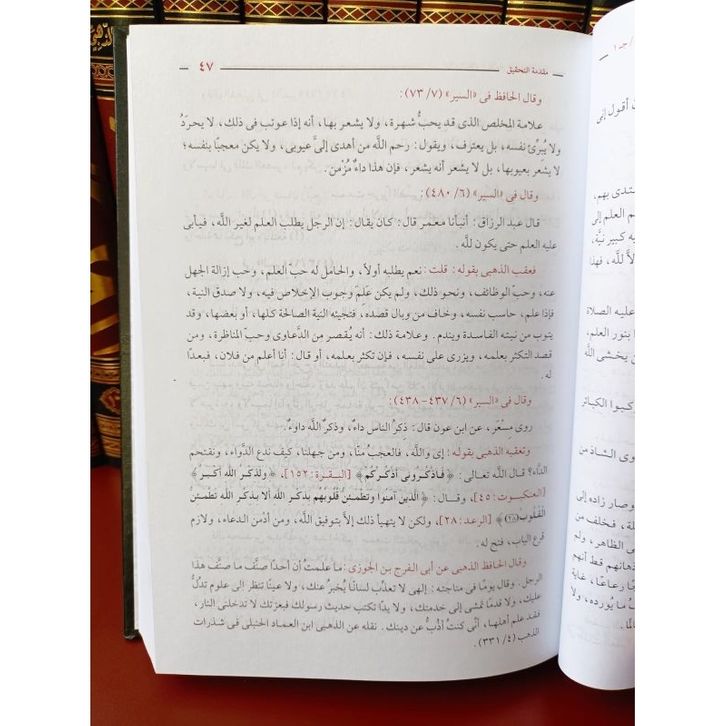 مقدمة التحقيق ٤٧
وقال الحافظ فى «السير» (٧/ ٧٣):
علامة المخلص الذى قد يحبُّ شهرة، ولا يشعر بها، أنه إذا عوتب فى ذلك، لا يحردُ
ولا يُبرِّئ نفسه، بل يعترف، ويقول: رحم اللَّه من أهدى إلىَّ عيوبى، ولا يكن معجبًا بنفسه؛
لا يشعر بعيوبها، بل لا يشعر أنه يشعر، فإن هذا داءٌ مُزْمن.
وقال فى «السير» (٦/ ٤٨٠):
قال عبد الرزاق: أنبأنا معمر قال: كان يقال: إن الرجل يطلب العلم لغير اللَّه، فيأبى
عليه العلم حتى يكون للَّه.
فعقب الذهبى بقوله: قلت: نعم يطلبه أولاً، والحامل له حبّ العلم، وحب إزالة الجهل
عنه، وحبّ الوظائف، ونحو ذلك، ولم يكن عَلمَ وجوب الإخلاص فيه، ولا صدق النية،
فإذا علم، حاسب نفسه، وخاف من وبال قصده، فتجيئه النية الصالحة كلها، أو بعضها، وقد
يتوب من نيته الفاسدة ويندم. وعلامة ذلك: أنه يُقصر من الدَّعاوى وحبِّ المناظرة، ومن
قصد التكثر بعلمه، ويزرى على نفسه، فإن تكثر بعلمه، أو قال: أنا أعلم من فلان، فبعدًا
له.
وقال فى «السير» (٦/ ٤٣٧- ٤٣٨):
روى مِسْعَر، عن ابن عون قال: ذِكرُ الناس داءٌ، وذكرُ اللَّه دواءٌ.
وتعقبه الذهبى بقوله: إى واللَّه، فالعجبُ منَّا، ومن جهلنا، كيف ندع الدَّواء، ونقتحم
الدَّاء؟ قال اللَّه تعالى: ﴿فَاذْكُرُونِى أَذْكُرْكُمْ﴾ [البقرة: ١٥٢]، ﴿وَلَذِكْرُ اللَّهِ أَكْبَرُ﴾
[العنكبوت: ٤٥]، وقال: ﴿الَّذِينَ آمَنُوا وَتَطْمَئِنُّ قُلُوبُهُم بِذِكْرِ اللَّهِ أَلا بِذِكْرِ اللَّهِ تَطْمَئِنُّ
الْقُلُوبُ (٢٨)﴾ [الرعد: ٢٨]، ولكن لا يتهيأ ذلك إلاَّ بتوفيق اللَّه، ومن أدْمن الدعاء، ولازم
قرع الباب، فتح له.
وقال الحافظ الذهبى عن أبى الفرج بن الجوزى: ما علمتُ أن أحدًا صنَّف ما صنَّف هذا
الرجل. وقال يومًا فى مناجاته: إلهى لا تعذِّب لسانًا يُخبرُ عنك، ولا عينًا تنظر إلى علوم تدلُّ
عليك، ولا قدمًا تمشى إلى خدمتك، ولا يدًا تكتب حديث رسولك فبعزتك لا تدخلنى النار،
فقد علم أهلها، أنِّى كنتُ أذُبُّ عن دينك. نقله عن الذهبى ابن العماد الحنبلى فى شذرات
الذهب (٤/ ٣٣١).
ن أقول إلى
ستدى بهم،
م العلم إلى
ه كبير نيَّة،
لاَّ للَّه، فهذا
عليه الصلاة
ا بنور العلم،
ن يخشى اللَّه
ركبوا الكبائر
وى الشاذ من
وصار زاده إلى
لة، فخلف من
ى الظاهر، ولم
ذهانهم قط أنهم
بًا رعاعًا، غاية
ُ ما يُورده، ولا